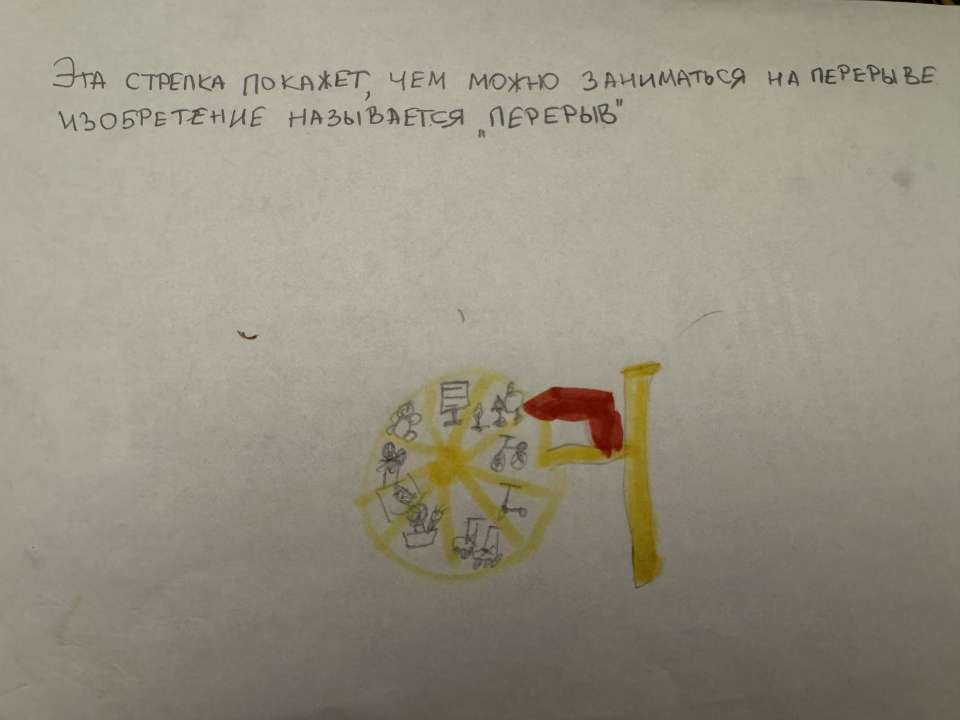 ЭТА СТРЕЛКА ПОКАЖЕТ, ЧЕМ МОЖНО ЗАНИМАТЬСЯ НА ПЕРЕРЫВЕ
ИЗОБРЕТЕНИЕ НАЗЫВАЕТСЯ „ПЕРЕРЫВ"